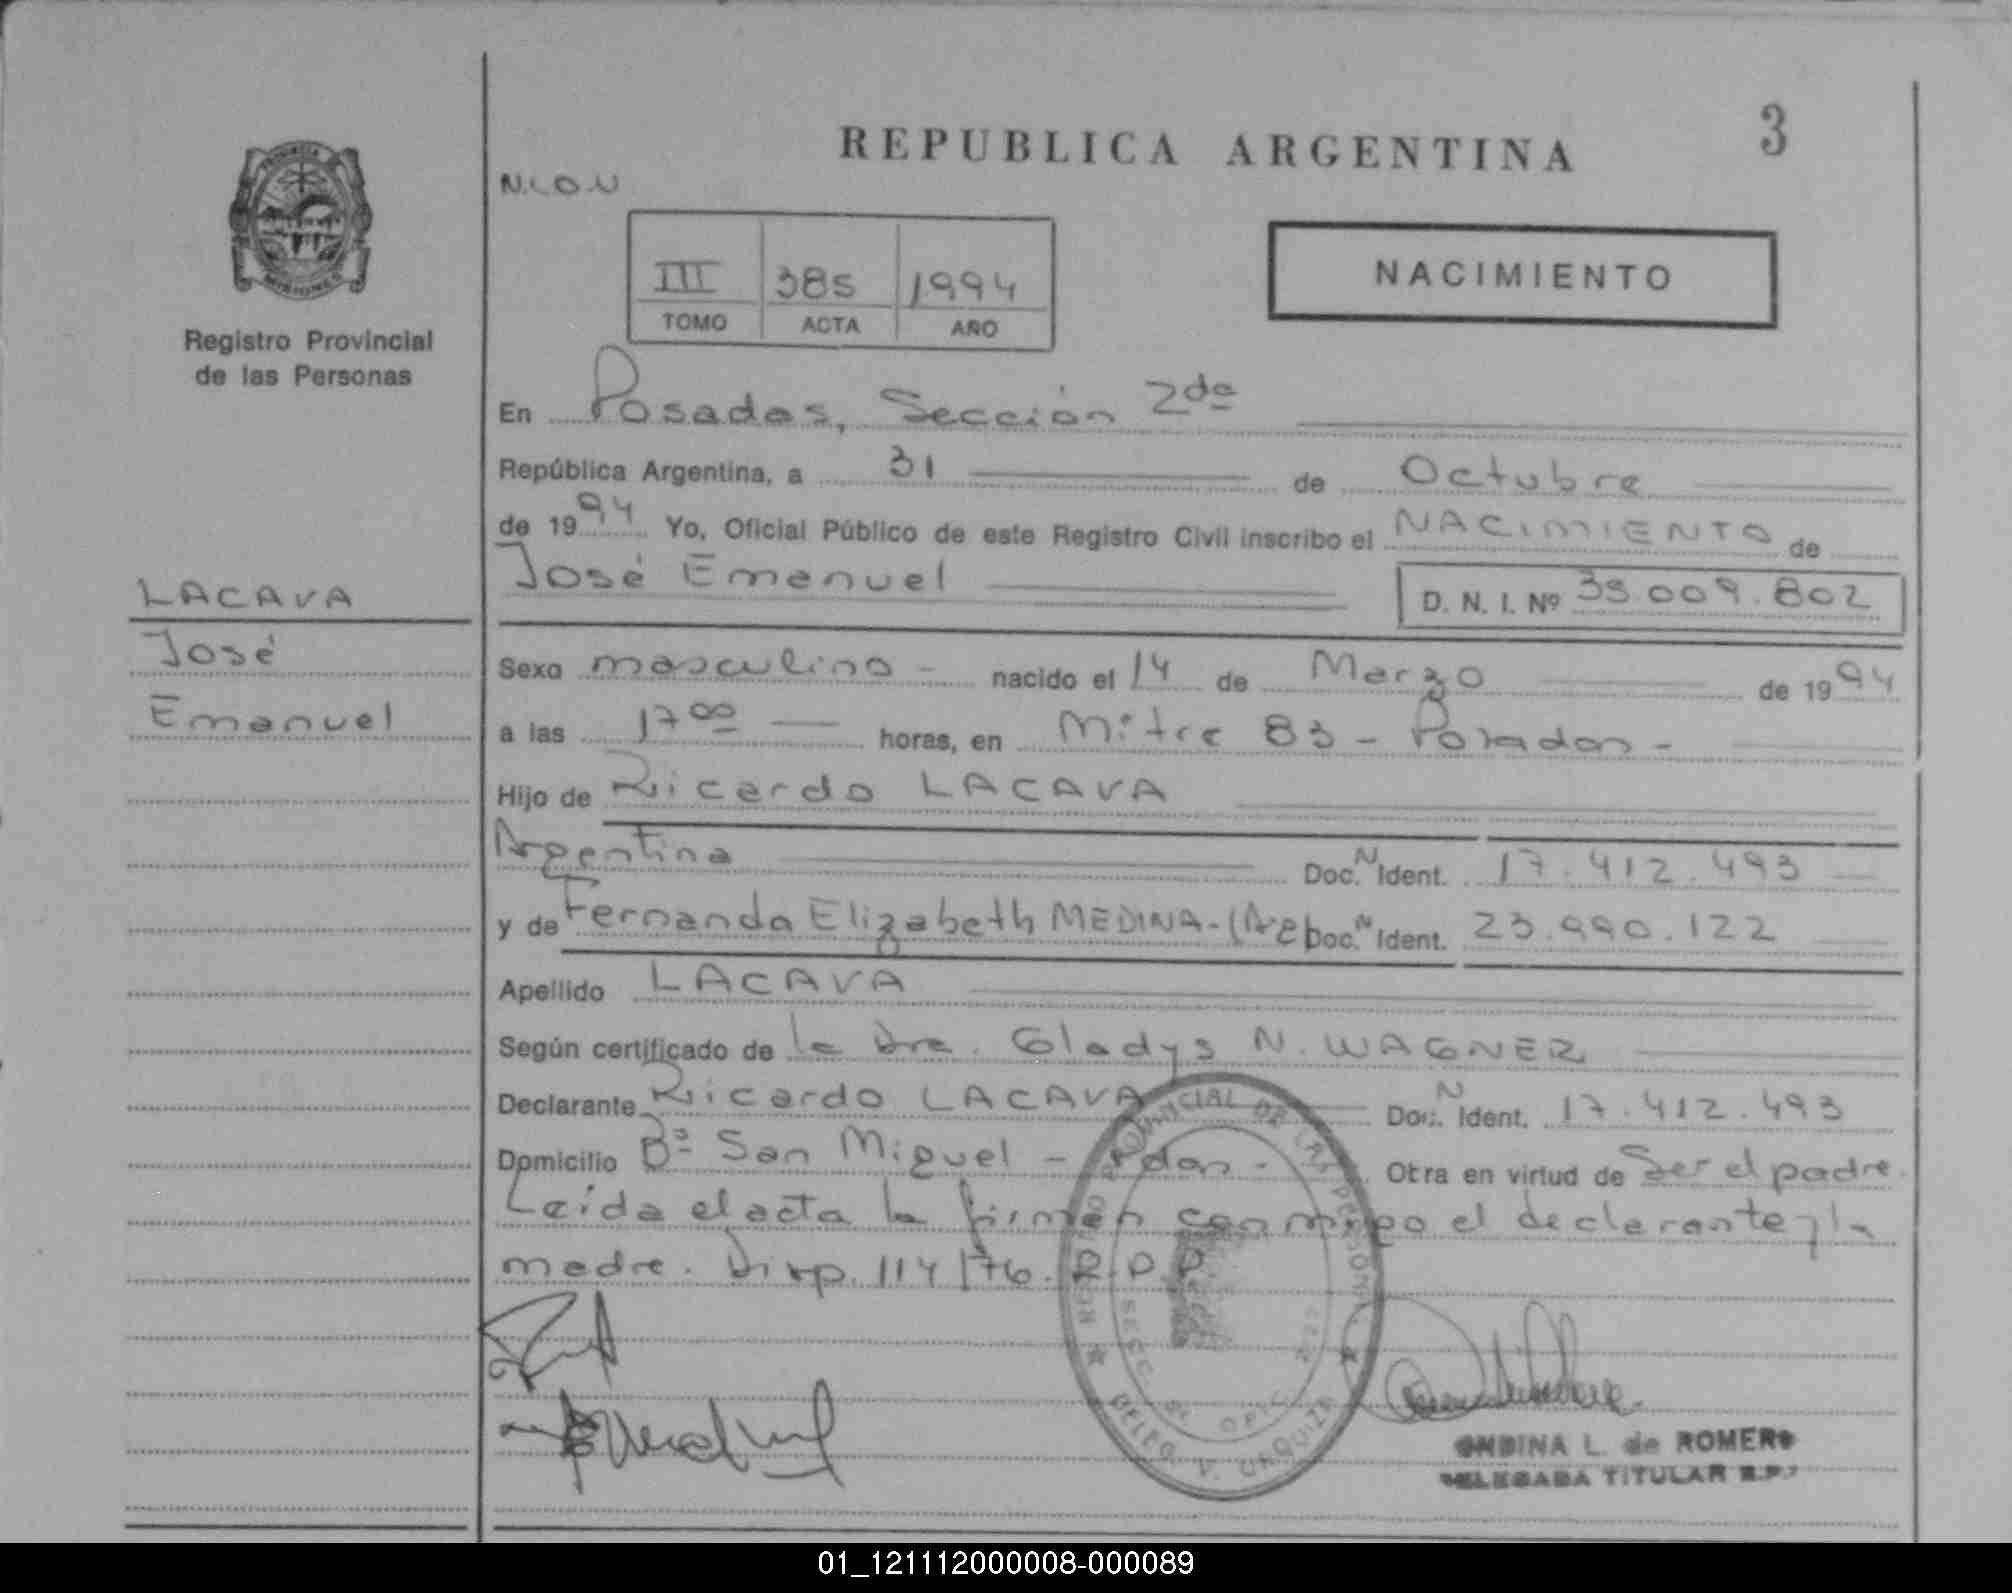 REPUBLICA ARGENTINA
3
PROVINCIA
MISIONES
Registro Provincial
de las Personas
III 385 1994
TOMO ACTA AÑO
NACIMIENTO
En Posadas, Sección 2da
República Argentina, a 31 de Octubre
de 1994 Yo, Oficial Público de este Registro Civil inscribo el NACIMIENTO de
José Emanuel
D. N. I. Nº 39.009.802
LACAVA
José
Emanuel
Sexo masculino - nacido el 14 de Marzo de 1994
a las 17 00 horas, en Mitre 83 - Posadas -
Hijo de Ricardo LACAVA
Argentina Doc. N Ident. 17.412.493
y de Fernanda Elizabeth MEDINA - (Arg Doc. N Ident. 23.990.122
Apellido LACAVA
Según certificado de la Dra. Gladys N. WAGNER
Declarante Ricardo LACAVA Doc. N Ident. 17.412.493
Domicilio Bº San Miguel - Pdas - Otra en virtud de Ser el padre.
Leída el acta la firman conmigo el declarante y la
madre. Disp. 114/76. R.P.P.
ONDINA L. de ROMERO
DELEGADA TITULAR R.P.
01_121112000008-000089